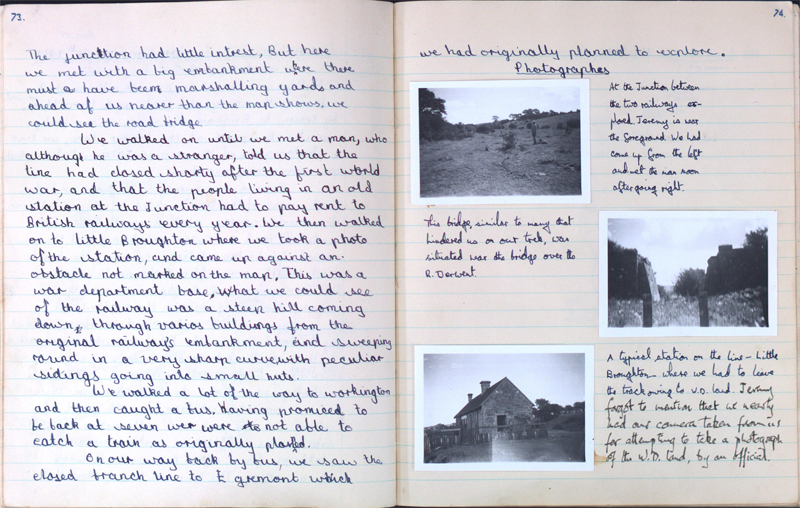 73.
The junction had little intrest, But here
we met with a big embankment were there
must have been marshalling yards and
ahead of us nearer than the map shows, we
could see the road bridge
We walked on until we met a man, who
although he was a stranger, told us that the
line had closed shorty after the first world
war, and that the people living in an old
station at the Junction had to pay rent to
British railways every year. We then walked
on to little Broughton where we took a photo
of the station, and came up against an
obstacle not marked on the map, This was a
war department base, What we could see
of the railway was a steep hill coming
down, through varios buildings from the
original railway's embankment, and sweeping
round in a very sharp curve with peculiar
sidings going into small huts.
We walked a lot of the way to workington
and then caught a bus. Having promised to
be back at seven wer were not able to
catch a train as originally planed.
On our way back by bus, we saw the
closed branch line to Egremont which
74.
we had originally planned to explore.
Photographes
At the Junction between
the two railways ex-
plored Jeremy is near
the foreground We had
come up from the left
and met the man soon
after going right.
This bridge, similar to many that
hindered us on our trek, was
situated near the bridge over the
R. Derwent.
A typical station on the line - Little
Broughton - where we had to leave
the track owing to W.D. land. Jeremy
forgot to mention that we nearly
had our camera taken from us
for attempting to take a photograph
of the W.D. land, by an official.